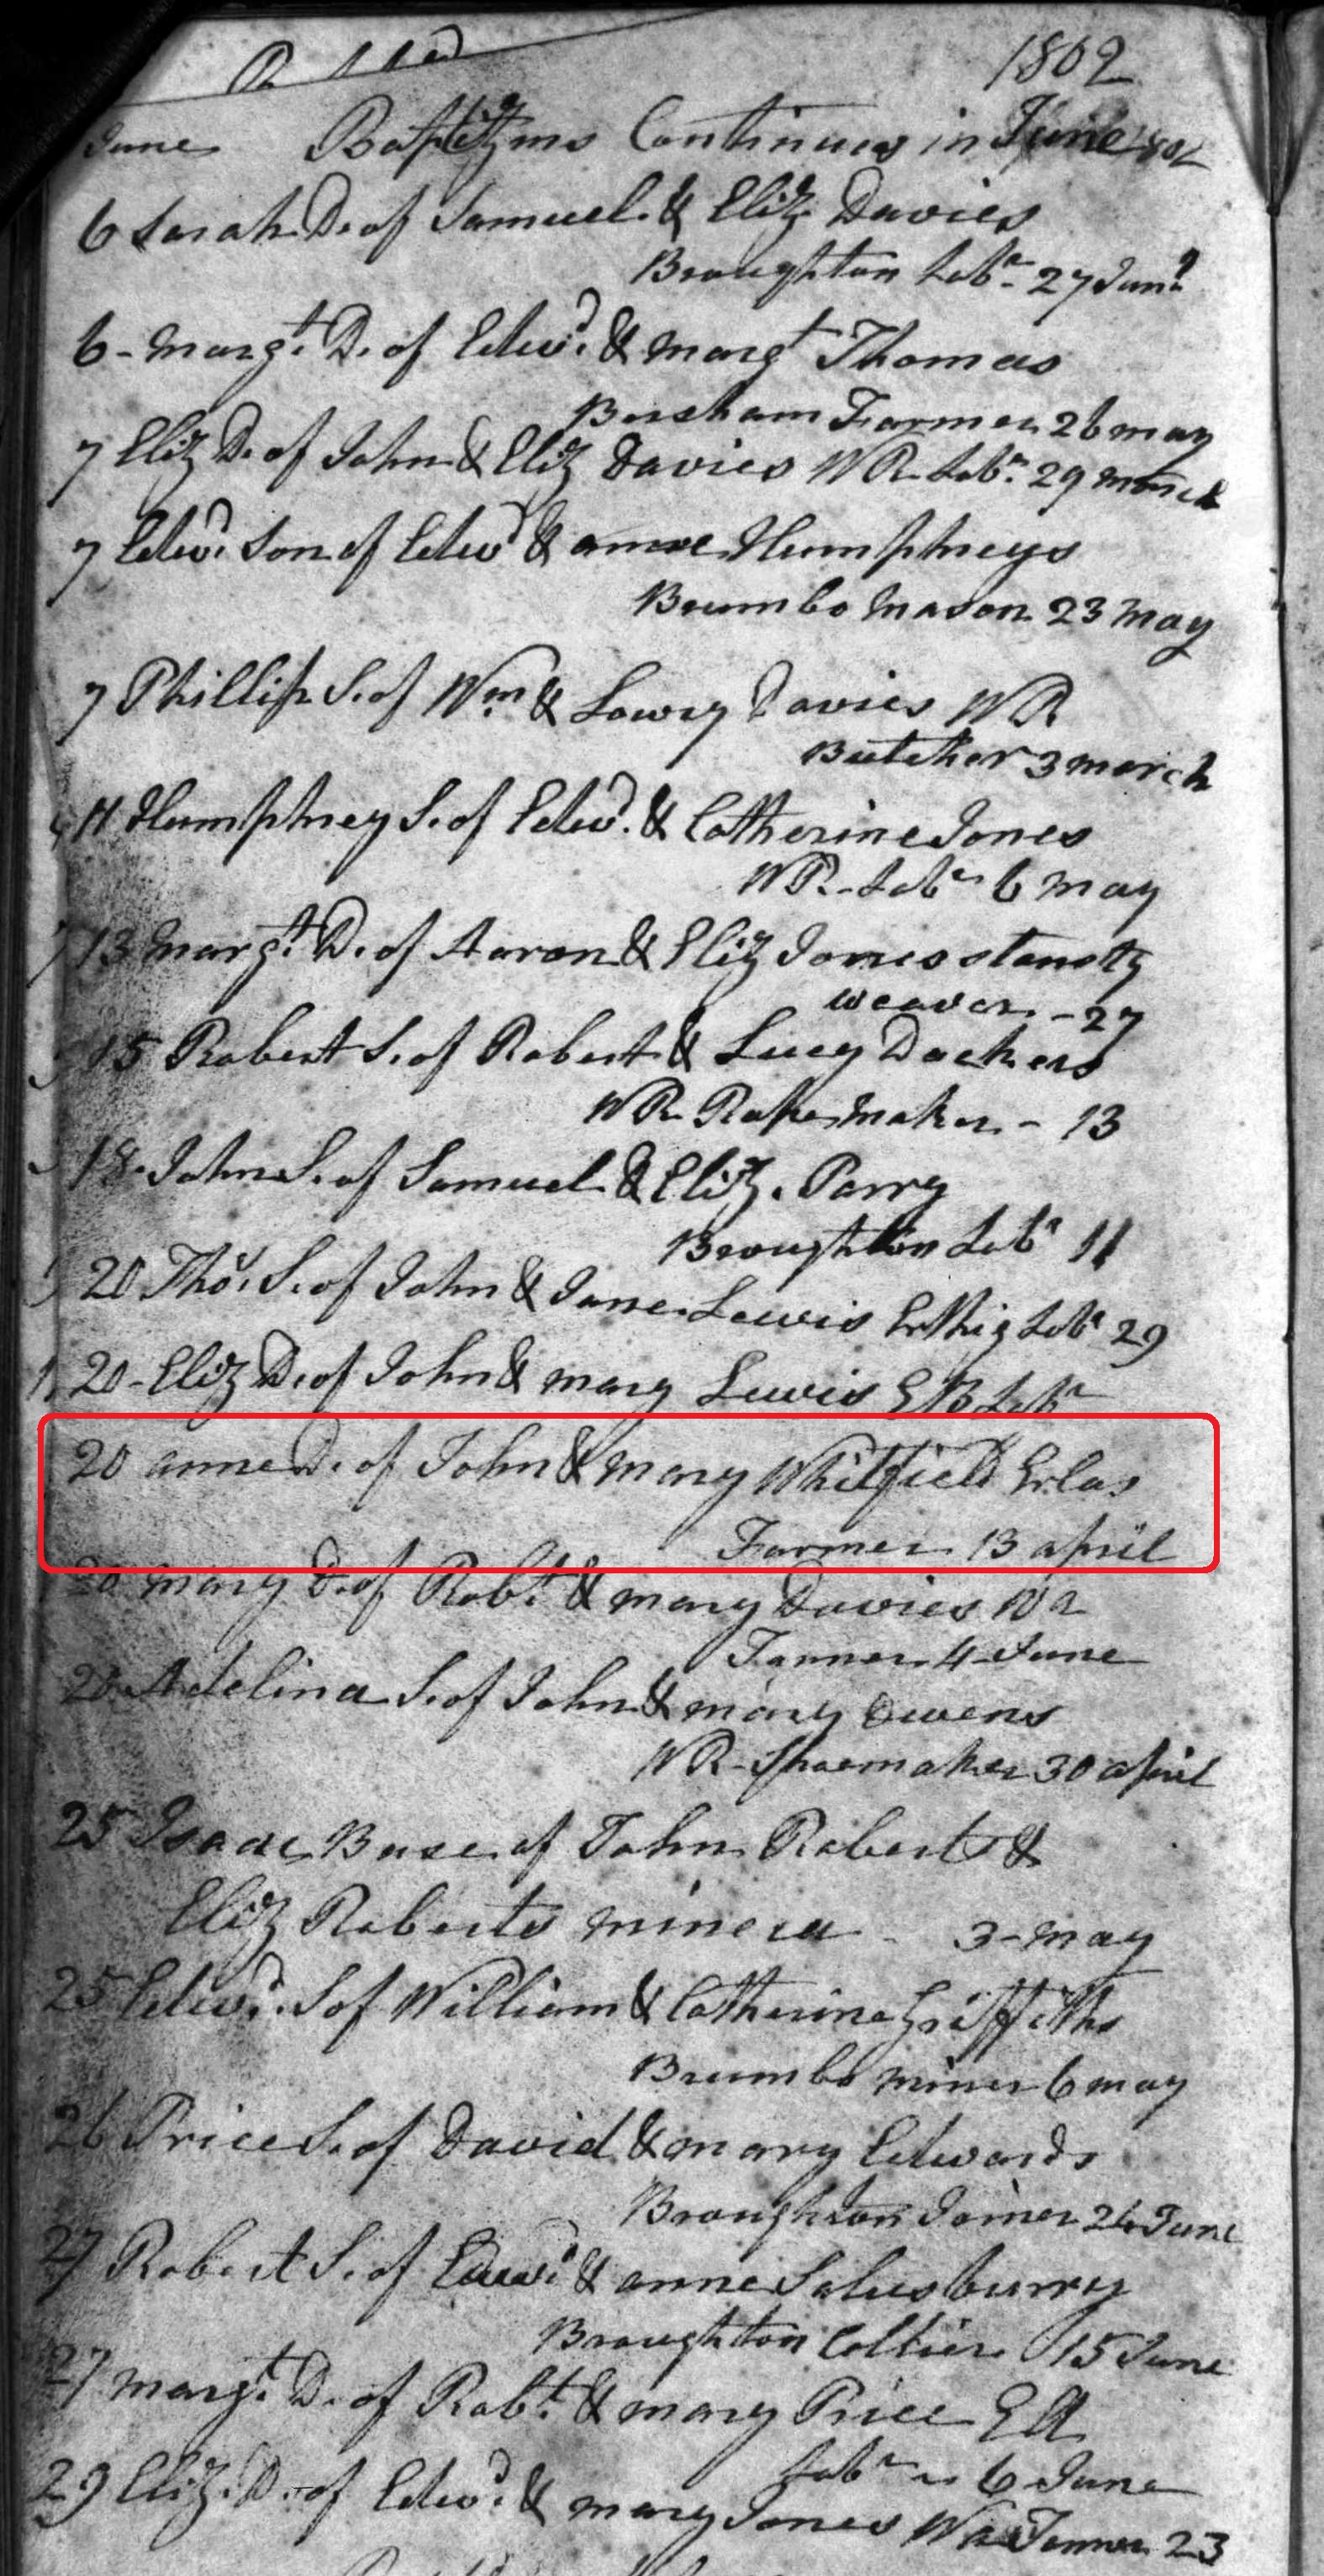 1802
June Baptizms Continues in June 1802
6 Sarah D. of Samuel & Eliz Davies
Broughton Labr 27 June
6 - Margt. D. of Edwd. & Margt Thomas
Bersham Farmer 26 may
7 Eliz D. of John & Eliz Davies WR Labr. 29 March
7 Edwd Son of Edwd & anne Humphreys
Brumbo Mason 23 May
7 Phillip S. of Wm & Lowry Davies WR
Butcher 3 march
11 Humphrey S. of Edwd. & Catherine Jones
WR - Labr 6 may
13 Margt. D. of Aaron & Eliz Jones stansty
weaver - 27
15 Robert S. of Robert & Lucy Dackers
WR Ropemaker - 13
18 John S. of Samuel & Eliz. Parry
Broughton Labr 11
20 Thos. S. of John & Jane Lewis Erthig Labr 29
20 - Eliz D. of John & mary Lewis EB Labr
20 anne D. of John & mary Whitfield Erlas
Farmer 13 april
20 mary D. of Robt. & mary Davies WA
Tanner 4 June
20 Adelina S. of John & mary Owens
WR - Shoemaker 30 april
25 Isaac Base of John Roberts &
Eliz Roberts minera - 3 - may
25 Edwd. S of William & Catherine Griffiths
Brumbo miner 6 may
26 Price S. of David & mary Edwards
Broughton Joiner 24 June
27 Robert S. of Edwd & anne Salusburry
Broughton Collier 15 June
27 margt. D. of Robt. & mary Price EA
Labr 6 June
29 Eliz. D. of Edwd. & mary Jones WA Tanner 23